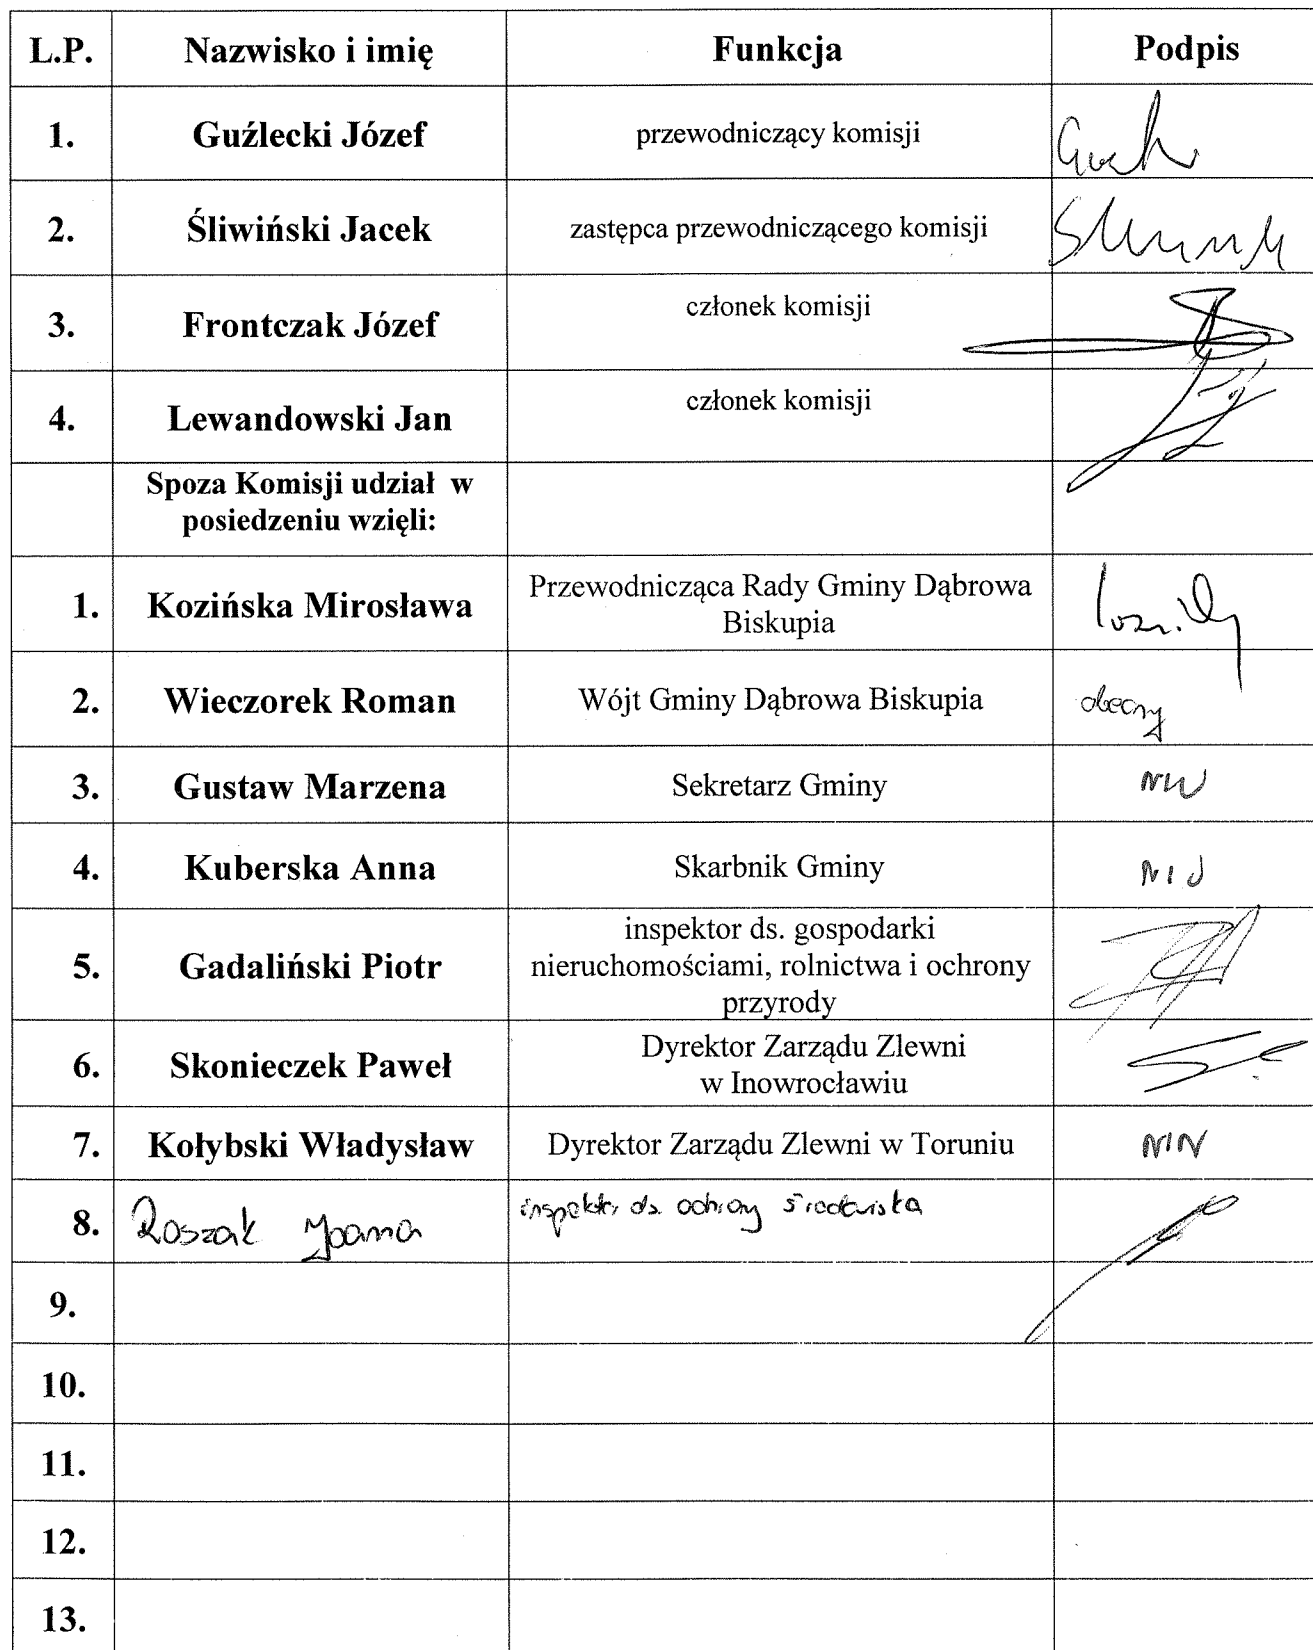 L.P. Nazwisko i imię Funkcja Podpis
1. Guźlecki Józef przewodniczący komisji
2. Śliwiński Jacek zastępca przewodniczącego komisji
3. Frontczak Józef członek komisji
4. Lewandowski Jan członek komisji
Spoza Komisji udział w
posiedzeniu wzięli:
1. Kozińska Mirosława Przewodnicząca Rady Gminy Dąbrowa
Biskupia
2. Wieczorek Roman Wójt Gminy Dąbrowa Biskupia obecny
3. Gustaw Marzena Sekretarz Gminy
4. Kuberska Anna Skarbnik Gminy
5. Gadaliński Piotr inspektor ds. gospodarki
nieruchomościami, rolnictwa i ochrony
przyrody
6. Skonieczek Paweł Dyrektor Zarządu Zlewni
w Inowrocławiu
7. Kołybski Władysław Dyrektor Zarządu Zlewni w Toruniu
8. Roszak Joanna inspektor ds. ochrony środowiska
9.
10.
11.
12.
13.